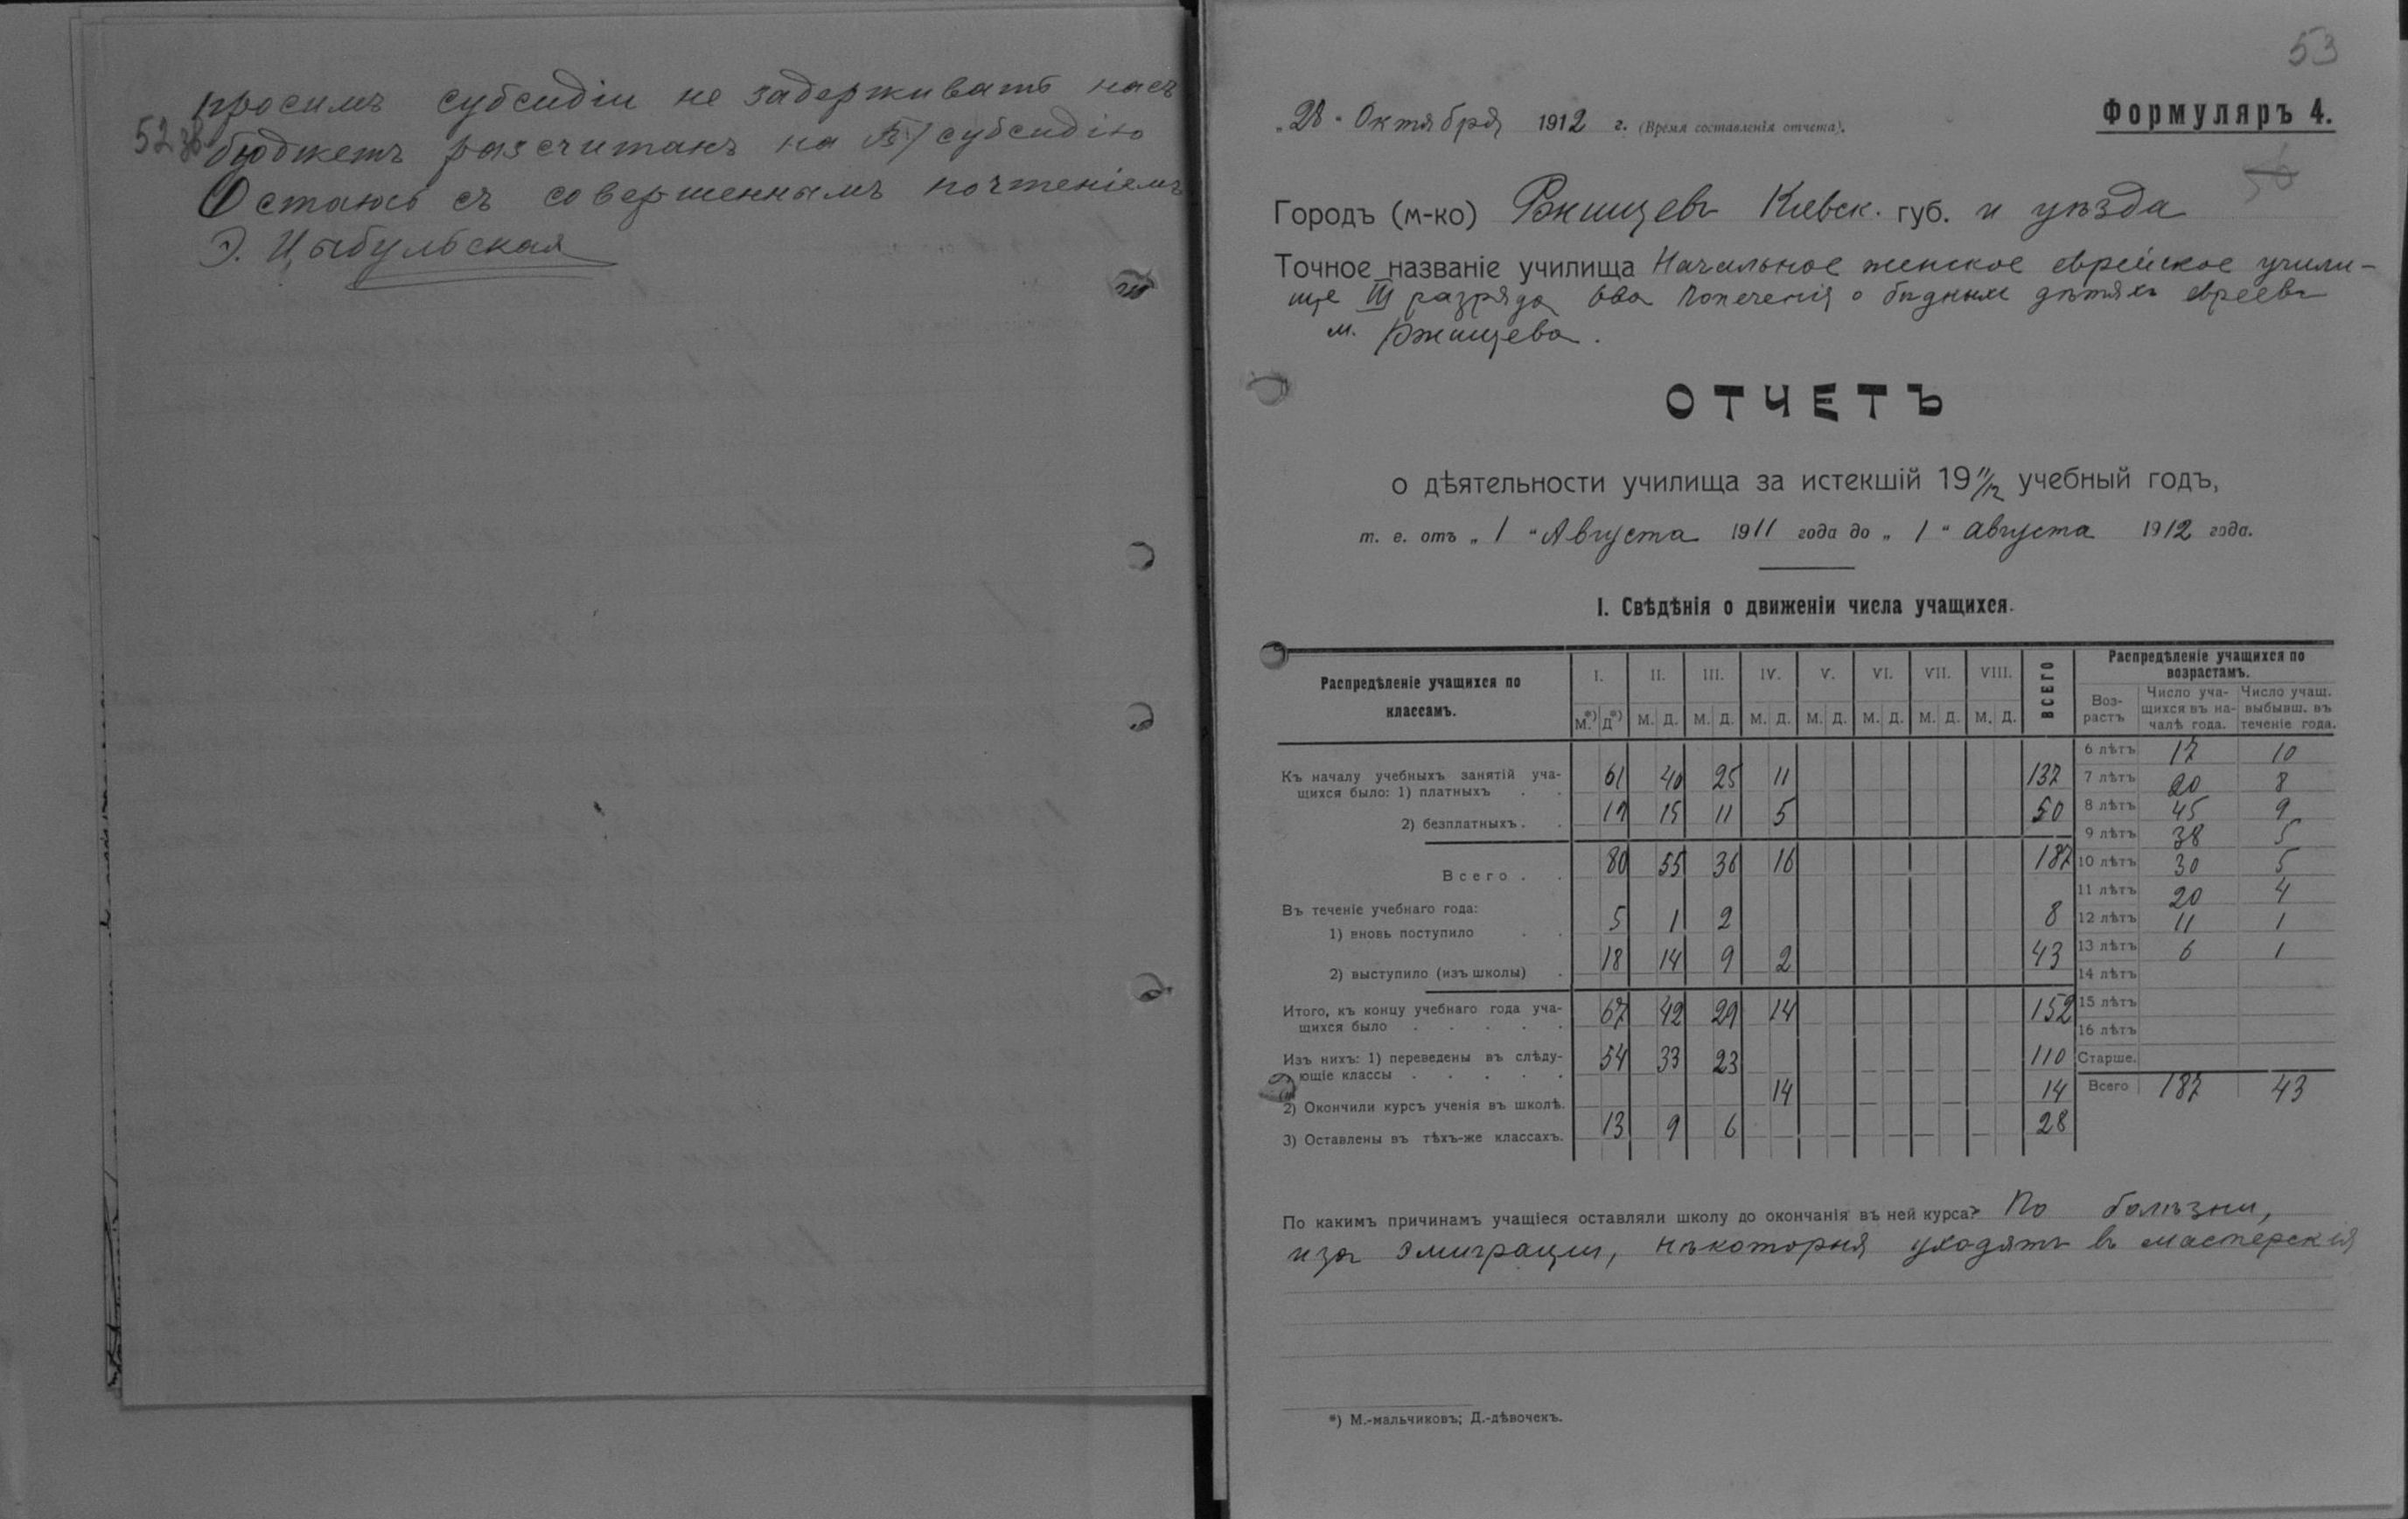 просимъ субсидіи не задерживать насъ
52 об
бюджетъ разсчитанъ на субсидію
Остаюсь съ совершеннымъ почтеніемъ
Э. Цыбульская
53
"28" Октября 1912 г. (Время составленія отчета).
Формуляръ 4.
Городъ (м-ко) Ржищевъ Кіевск. губ. и уѣзда
Точное названіе училища Начальное женское еврейское учили-
ще III разряда Ова Попеченія о бѣдныхъ дѣтяхъ евреевъ
м. Ржищева.
ОТЧЕТЪ
о дѣятельности училища за истекшій 19 11/12 учебный годъ,
т. е. отъ „ 1 " Августа 1911 года до „ 1 " августа 1912 года.
I. Свѣдѣнія о движеніи числа учащихся.
Распредѣленіе учащихся по классамъ. I. II. III. IV. V. VI. VII. VIII. ВСЕГО
М.*) Д.*) М. Д. М. Д. М. Д. М. Д. М. Д. М. Д. М. Д.
Къ началу учебныхъ занятій уча-
щихся было: 1) платныхъ . . 61 40 25 11 137
2) безплатныхъ . . 19 15 11 5 50
Всего . . 80 55 36 16 187
Въ теченіе учебнаго года:
1) вновь поступило . . 5 1 2 8
2) выступило (изъ школы) . 18 14 9 2 43
Итого, къ концу учебнаго года уча-
щихся было . . . . . 67 42 29 14 152
Изъ нихъ: 1) переведены въ слѣду-
ющіе классы . . . . . 54 33 23 110
2) Окончили курсъ ученія въ школѣ. 14 14
3) Оставлены въ тѣхъ-же классахъ. 13 9 6 28
Распредѣленіе учащихся по
возрастамъ.
Воз-
растъ
Число уча-
щихся въ на-
чалѣ года.
Число учащ.
выбывш. въ
теченіе года.
6 лѣтъ 17 10
7 лѣтъ 20 8
8 лѣтъ 45 9
9 лѣтъ 38 5
10 лѣтъ 30 5
11 лѣтъ 20 4
12 лѣтъ 11 1
13 лѣтъ 6 1
14 лѣтъ
15 лѣтъ
16 лѣтъ
Старше.
Всего 187 43
По какимъ причинамъ учащіеся оставляли школу до окончанія въ ней курса? По болѣзни,
изза эмиграціи, нѣкоторыя уходятъ въ мастерскія
*) М.-мальчиковъ; Д.-дѣвочекъ.